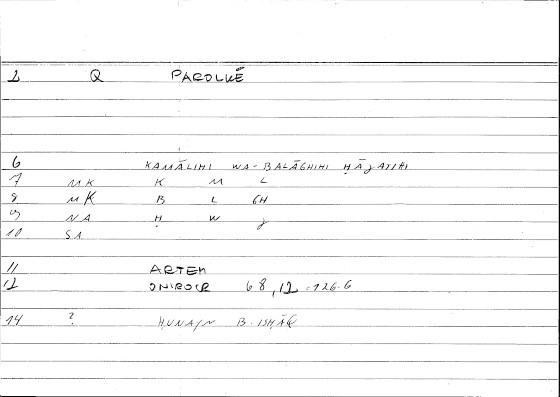 1 Q PAROLKĒ
6 KAMĀLIHI WA-BALĀGHIHI ḤĀJATIHI
7 MK K M L
8 MK B L GH
9 NA Ḥ W J
10 SA
11 ARTEM
12 ONIROCR 68,12 - 126.6
14 ? ḤUNAIN B. ISḤĀQ